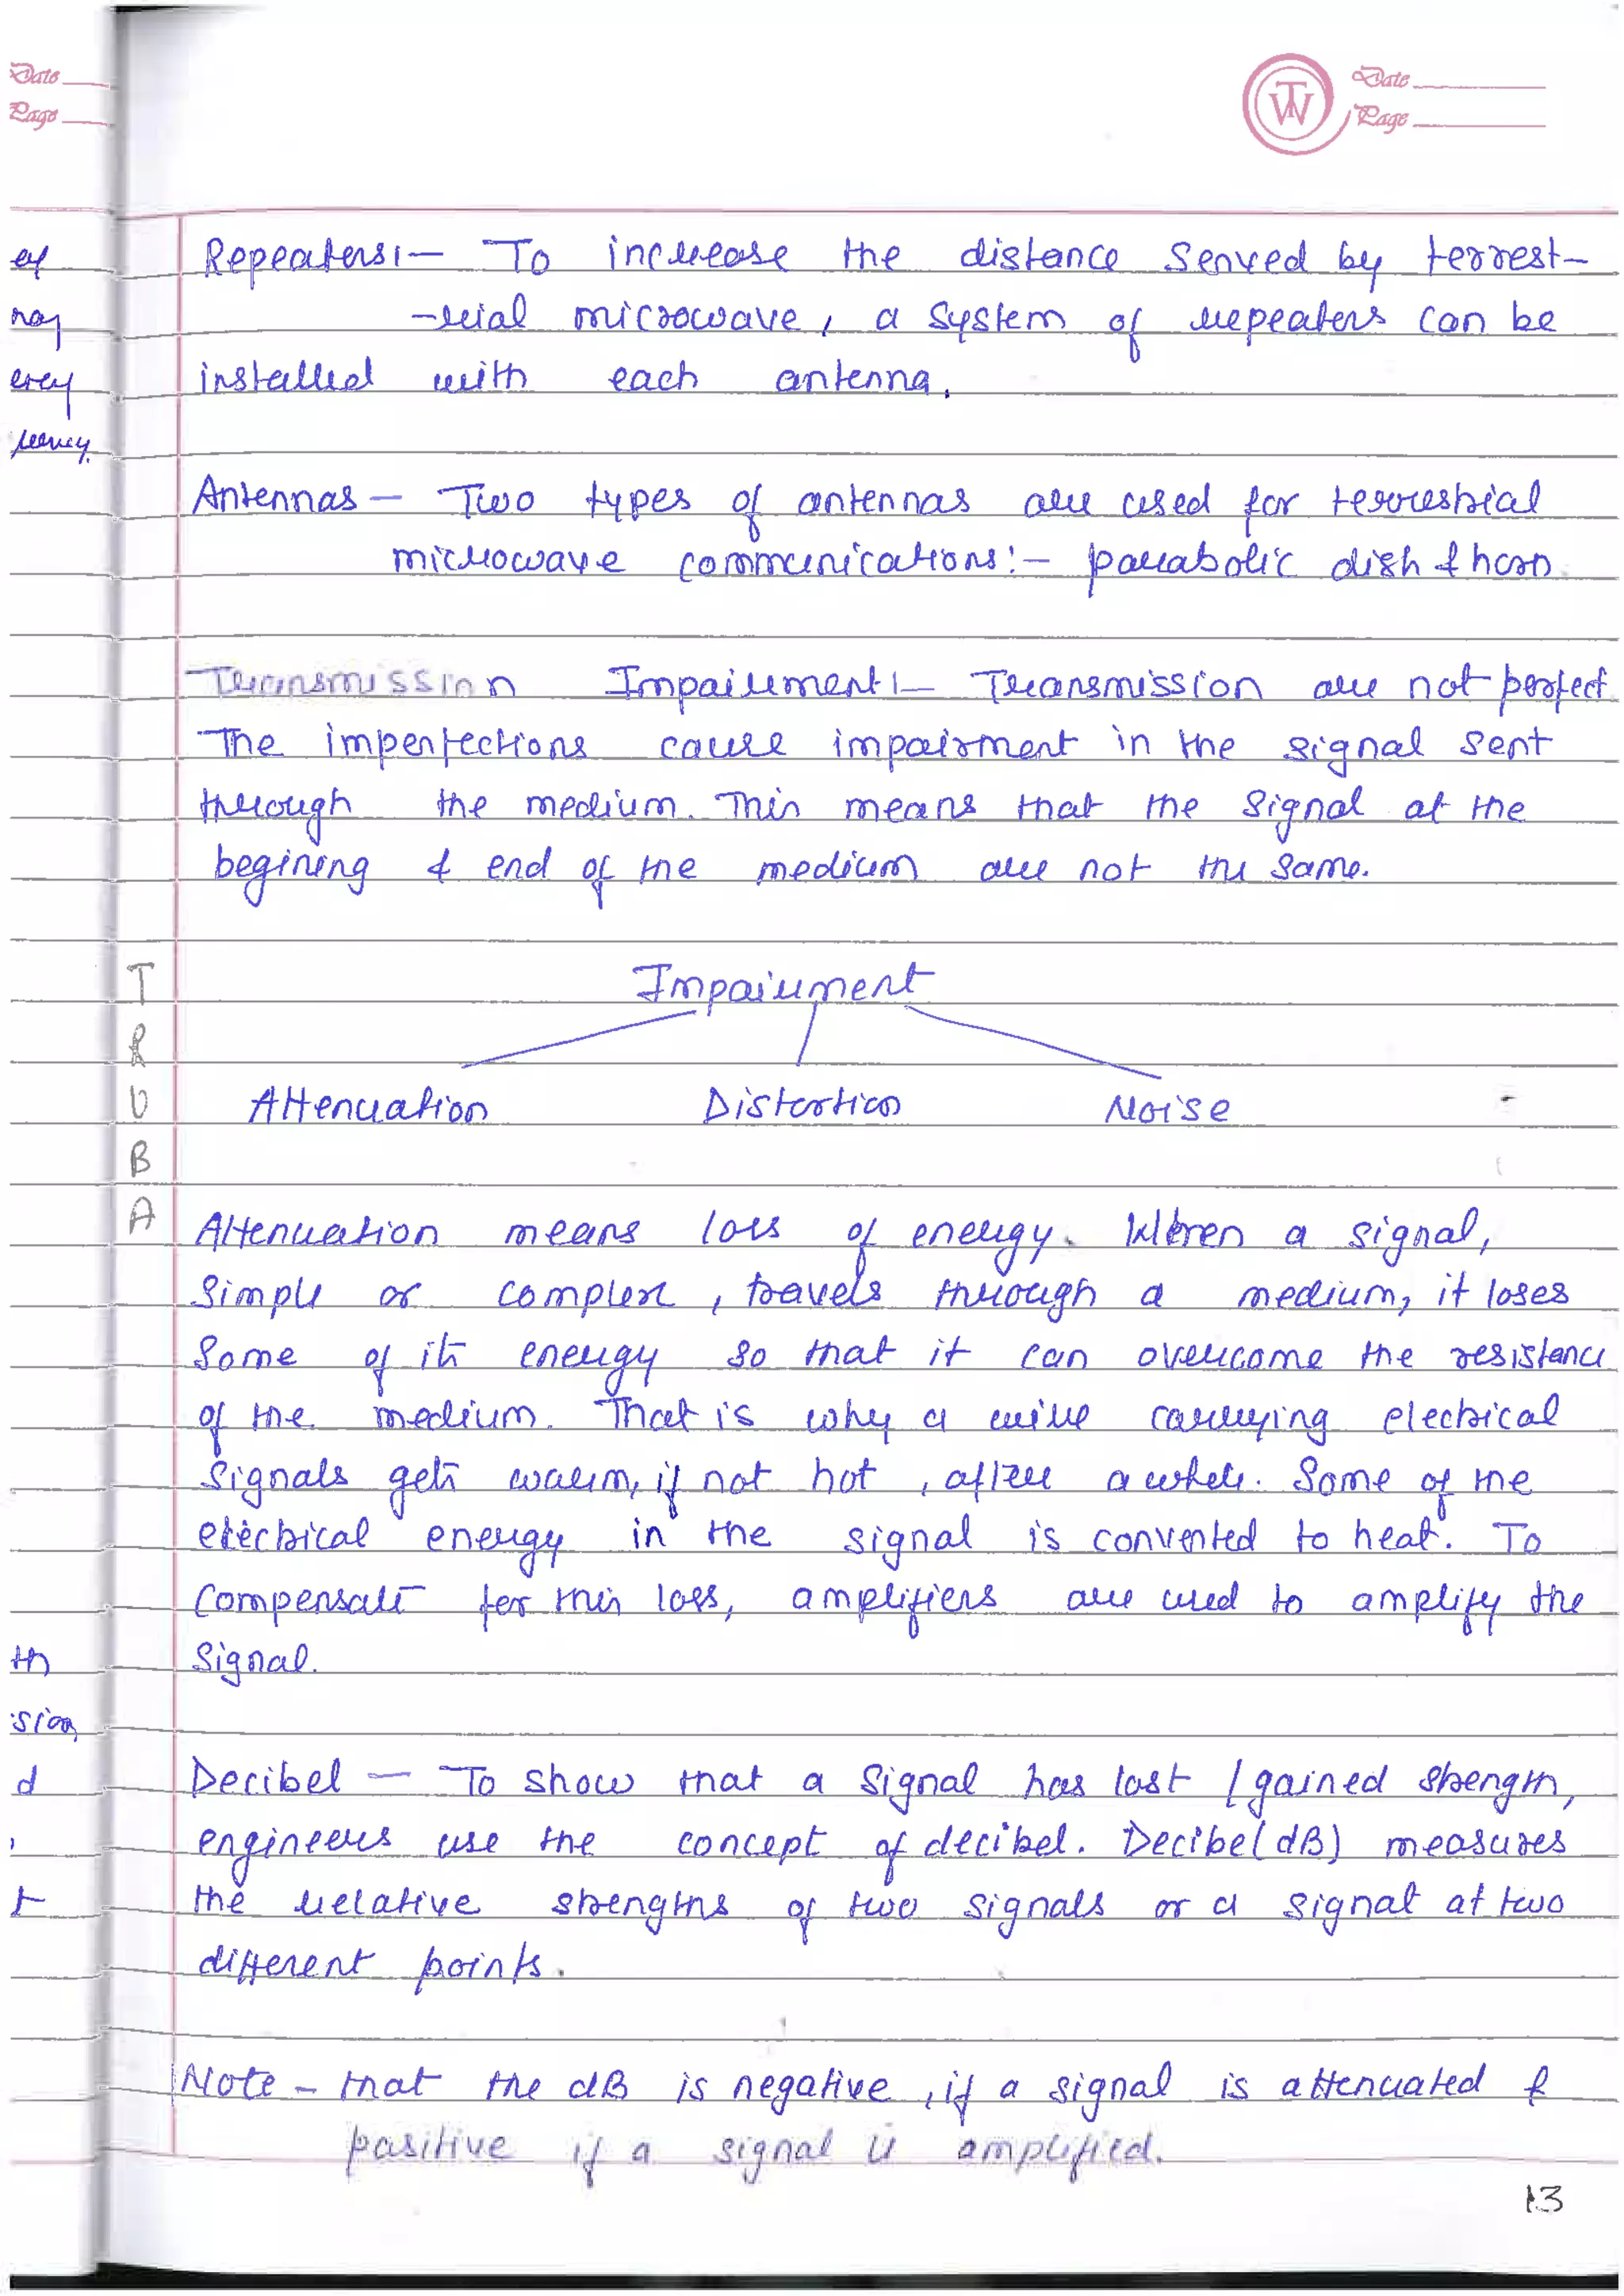 Date
Page
TW
Date
Page
Repeaters:- To increase the distance served by terrest-
-rial microwave, a system of repeaters can be
installed with each antenna.
Antennas - Two types of antennas are used for terrestrial
microwave communications:- parabolic dish & horn
Transmission Impairment:- Transmission are not perfect.
The imperfections cause impairment in the signal sent
through the medium. This means that the signal at the
begining & end of the medium are not the same.
Impairment
Attenuation Distortion Noise
T
R
U
B
A
Attenuation means loss of energy. When a signal,
simple or complex, travels through a medium, it loses
some of its energy so that it can overcome the resistance
of the medium. That is why a wire carrying electrical
signals gets warm, if not hot, after a while. Some of the
electrical energy in the signal is converted to heat. To
compensate for this loss, amplifiers are used to amplify the
signal.
Decibel - To show that a signal has lost / gained strength,
engineers use the concept of decibel. Decibel(dB) measures
the relative strengths of two signals or a signal at two
different points.
Note - that the dB is negative, if a signal is attenuated &
positive if a signal is amplified.
13
th
sion
d
,
t